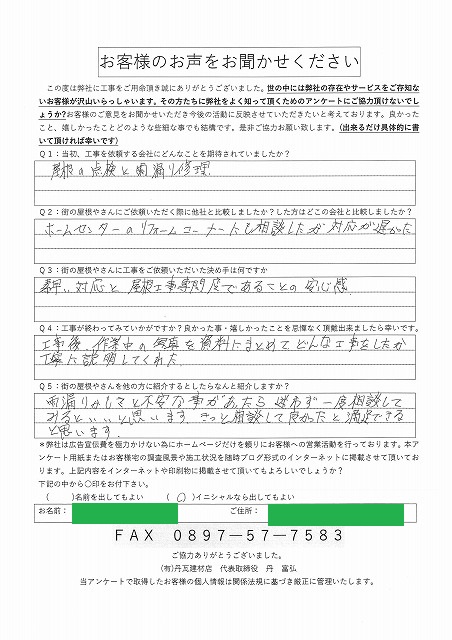 お客様のお声をお聞かせください
この度は弊社に工事をご用命頂き誠にありがとうございました。世の中には弊社の存在やサービスをご存知な
いお客様が沢山いらっしゃいます。その方たちに弊社をよく知って頂くためのアンケートにご協力頂けないでし
ょうか?お客様のご意見をお聞かせいただき今後の活動に反映させていただきたいと考えております。良かった
こと、嬉しかったことどのような些細な事でも結構です。是非ご協力お願い致します。(出来るだけ具体的に書
いて頂ければ幸いです)
Q1:当初、工事を依頼する会社にどんなことを期待されていましたか?
屋根の点検と雨漏り修理
Q2:街の屋根やさんにご依頼いただく際に他社と比較しましたか?した方はどこの会社と比較しましたか?
ホームセンターのリフォームコーナーにも相談したが対応が遅かった
Q3:街の屋根やさんに工事をご依頼いただいた決め手は何ですか
素早い対応と屋根工事専門店であることの安心感
Q4:工事が終わってみていかがですか?良かった事・嬉しかったことを忌憚なく頂戴出来ましたら幸いです。
工事後、作業中の写真を資料にまとめて、どんな工事をしたか
丁寧に説明してくれた
Q5:街の屋根やさんを他の方に紹介するとしたらなんと紹介しますか?
雨漏りかしら?と不安な事があったら迷わず一度相談して
みるといいと思います。きっと相談して良かったと満足できる
と思います。
*弊社は広告宣伝費を極力かけない為にホームページだけを頼りにお客様への営業活動を行っております。本ア
ンケート用紙またはお客様宅の調査風景や施工状況を随時ブログ形式のインターネットに掲載させて頂いてお
ります。上記内容をインターネットや印刷物に掲載させて頂いてもよろしいでしょうか?
下記の中から○印をお付下さい。
( )名前を出してもよい (○)イニシャルなら出してもよい
お名前: ご住所:
FAX 0897-57-7583
ご協力ありがとうございました。
(有)丹瓦建材店 代表取締役 丹 富弘
当アンケートで取得したお客様の個人情報は関係法規に基づき厳正に管理いたします。